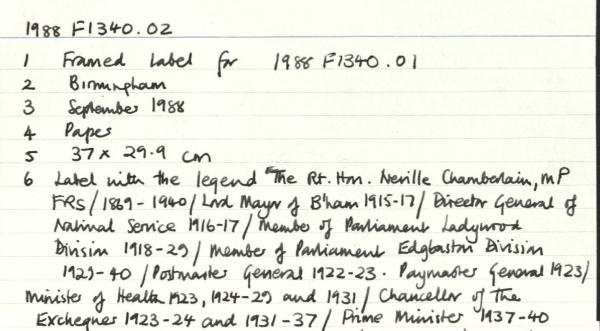 1988 F1340.02
1 Framed Label for 1988 F1340.01
2 Birmingham
3 September 1988
4 Paper
5 37 x 29.9 cm
6 Label with the legend "The Rt. Hon. Neville Chamberlain, MP
FRS / 1869-1940 / Lord Mayor of B'ham 1915-17 / Director General of
National Service 1916-17 / Member of Parliament Ladywood
Division 1918-29 / Member of Parliament Edgbaston Division
1929-40 / Postmaster General 1922-23. Paymaster General 1923/
Minister of Health 1923, 1924-29 and 1931 / Chancellor of The
Exchequer 1923-24 and 1931-37 / Prime Minister 1937-40